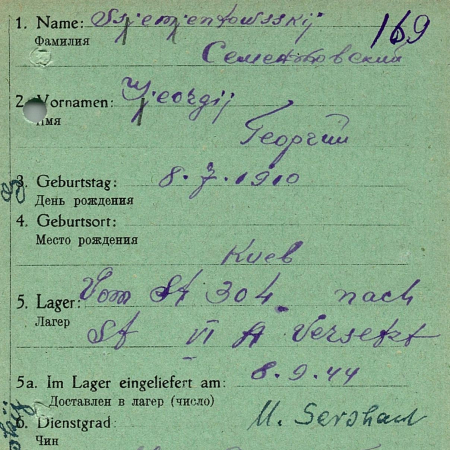 1. Name: Ssjemjenkowsskij 169
Фамилия
Семеньковский
2. Vornamen: Georgij
Имя
Георгий
3. Geburtstag: 8.7.1910
День рождения
4. Geburtsort:
Место рождения
Киев
5. Lager: Vom St 304 nach
Лагер
St VI A Versetzt
5a. Im Lager eingeliefert am: 8.9.44
Доставлен в лагер (число)
6. Dienstgrad:
Чин